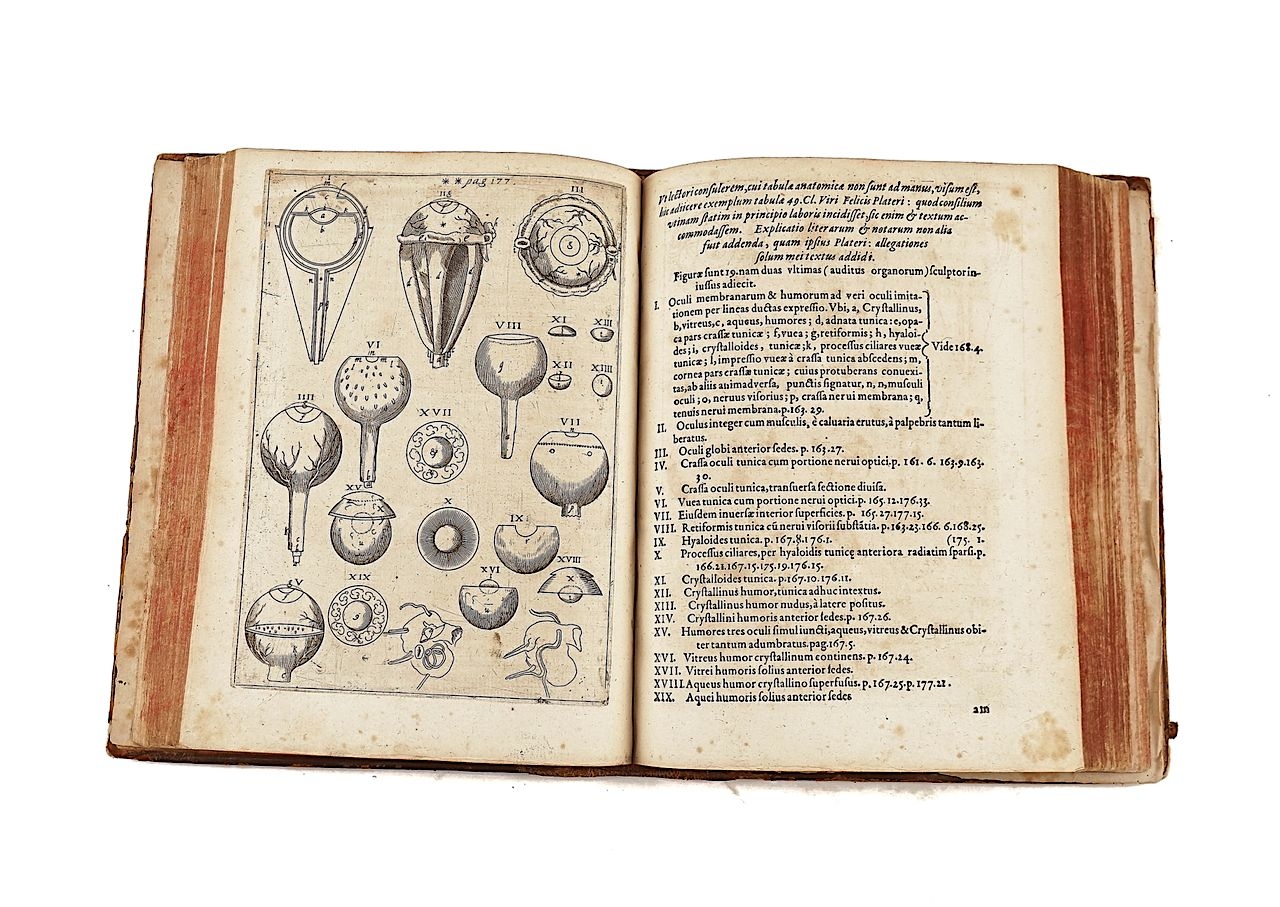 ** pag 177.
I
II
III
VIII
XI
XIII
VI
XII
XIIII
IIII
XVII
VII
XV
X
IX
XVIII
XVI
V
XIX
Vt lectori consulerem, cui tabulæ anatomicæ non sunt ad manus, visum est,
huc adiicere exemplum tabulæ 49. Cl. Viri Felicis Plateri: quod consilium
vtinam statim in principio laboris incidisset, sic enim & textum ac-
commodassem. Explicatio literarum & notarum non alia
fuit addenda, quam ipsius Plateri: allegationes
solum mei textus addidi.
Figuræ sunt 19. nam duas vltimas (auditus organorum) sculptor in-
iussus adiecit.
I. Oculi membranarum & humorum ad veri oculi imita-
tionem per lineas ductas expressio. Vbi, a, Crystallinus,
b, vitreus, c, aqueus, humores; d, adnata tunica: e, opa-
ca pars crassæ tunicæ; f, vuea; g, retiformis; h, hyaloi-
des; i, crystalloides, tunicæ; k, processus ciliares vueæ Vide 168.4.
tunicæ; l, impressio vueæ à crassa tunica abscedens; m,
cornea pars crassæ tunicæ; cuius protuberans conuexi-
tas, ab aliis animadversa, punctis signatur, n, n, musculi
oculi; o, neruus visorius; p, crassa nerui membrana; q,
tenuis nerui membrana. p. 163. 29.
II. Oculus integer cum musculis, è caluaria erutus, à palpebris tantum li-
beratus.
III. Oculi globi anterior sedes. p. 163.27.
IV. Crassa oculi tunica cum portione nerui optici. p. 161. 6. 163.9.163.
30.
V. Crassa oculi tunica, transuersa sectione diuisa.
VI. Vuea tunica cum portione nerui optici. p. 165.12.176.33.
VII. Eiusdem inuersæ interior superficies. p. 165.27.177.15.
VIII. Retiformis tunica cũ nerui visorii substãtia. p. 163.23.166. 6.168.25.
IX Hyaloides tunica. p. 167.8.176.1. (175. 1.
X. Processus ciliares, per hyaloidis tunicę anteriora radiatim sparsi. p.
166.21.167.15.175.19.176.15.
XI. Crystalloides tunica. p. 167.10.176.11.
XII. Crystallinus humor, tunica adhuc intextus.
XIII. Crystallinus humor nudus, à latere positus.
XIV. Crystallini humoris anterior sedes. p. 167.26.
XV. Humores tres oculi simul iuncti, aqueus, vitreus & Crystallinus obi-
ter tantum adumbratus. pag. 167.5.
XVI. Vitreus humor crystallinum continens. p. 167.24.
XVII. Vitrei humoris solius anterior sedes.
XVIII. Aqueus humor crystallino superfusus. p. 167.25. p. 177.21.
XIX. Aquei humoris solius anterior sedes
am